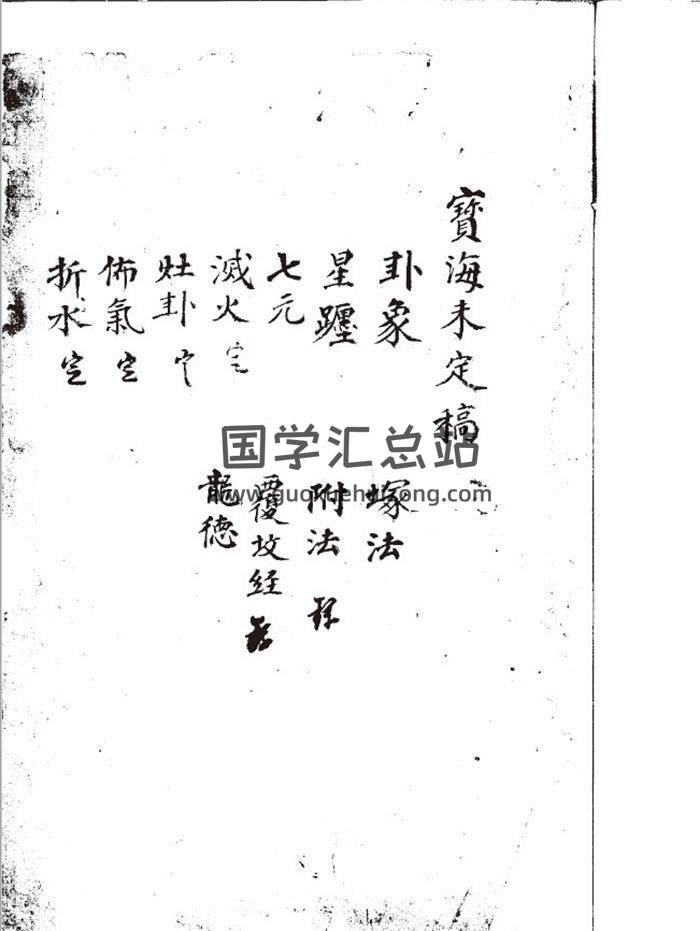 寶海未定稿
卦象
星躔
七元
滅火 定
灶卦
佈氣 定
折水 定
塚法
附法
覆坟经
龍德
国学汇总站
www.guoxuehuizong.com